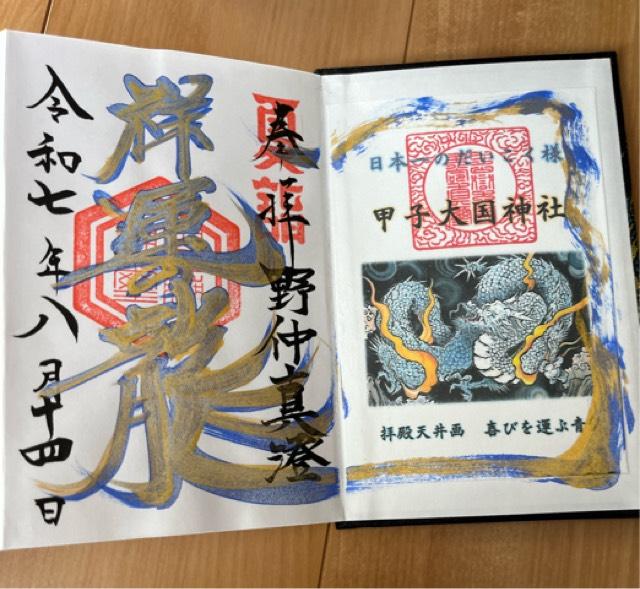 日本一のだいこく様
甲子大国神社
拝殿天井画　喜びを運ぶ青
夏詣
奉拝 野仲真澄
祥運の龍
令和七年八月十四日